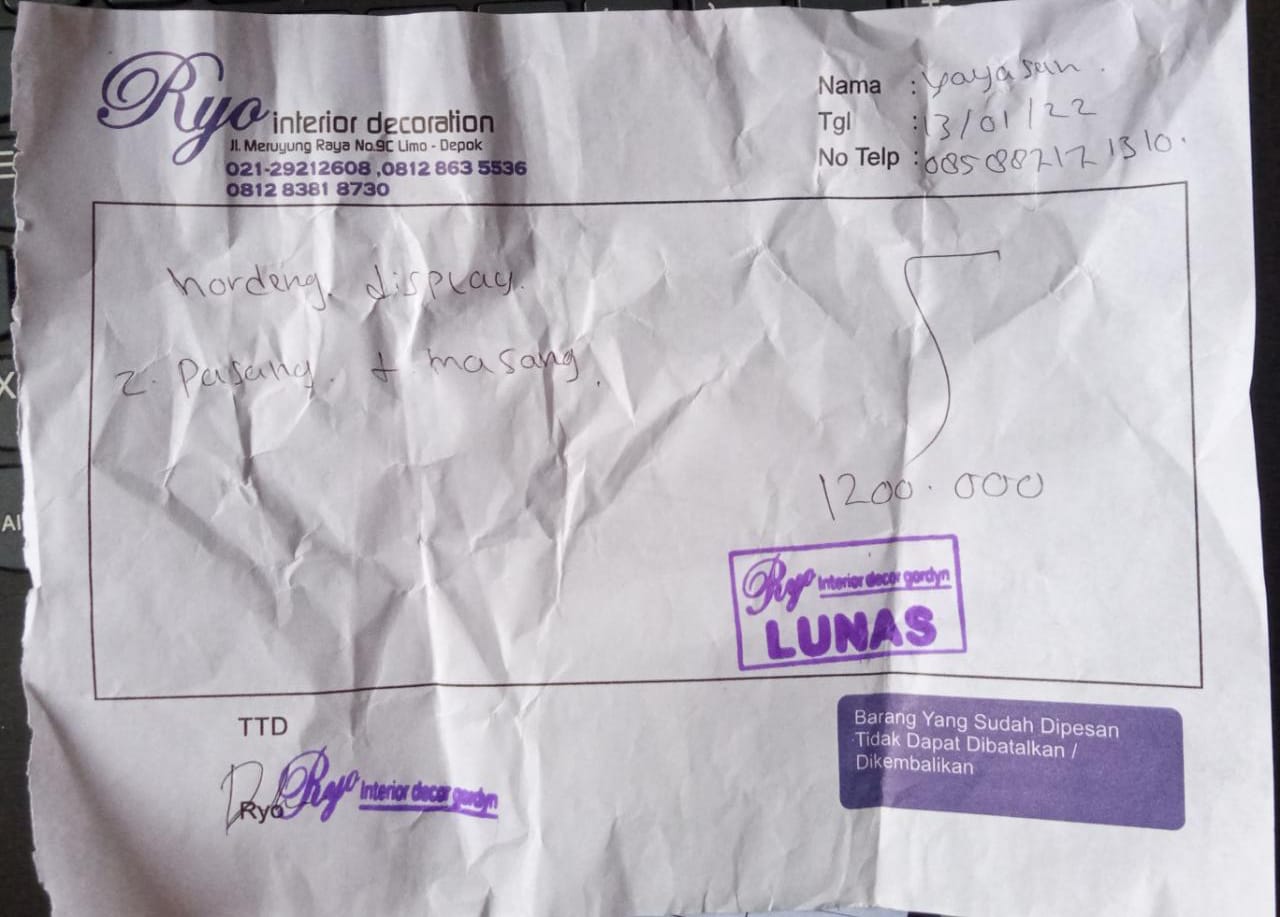 Ryo interior decoration
Jl. Meruyung Raya No.9C Limo - Depok
021-29212608 ,0812 863 5536
0812 8381 8730
Nama : Yayasan.
Tgl : 13/01/22
No Telp :
hordeng. display.
2. Pasang. + masang.
1200.000
Ryo Interior decor gordyn
LUNAS
TTD
Ryo
Ryo Interior decor gordyn
Barang Yang Sudah Dipesan
Tidak Dapat Dibatalkan /
Dikembalikan